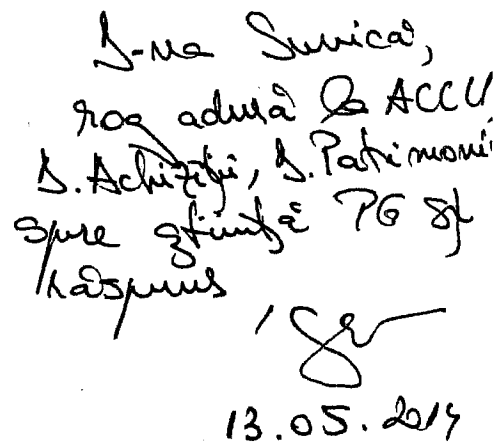 D-na Sunica,
rog adusă la ACCU,
D. Achiziții, D. Patrimoniu
spre știință PG și
răspuns
13.05.2014